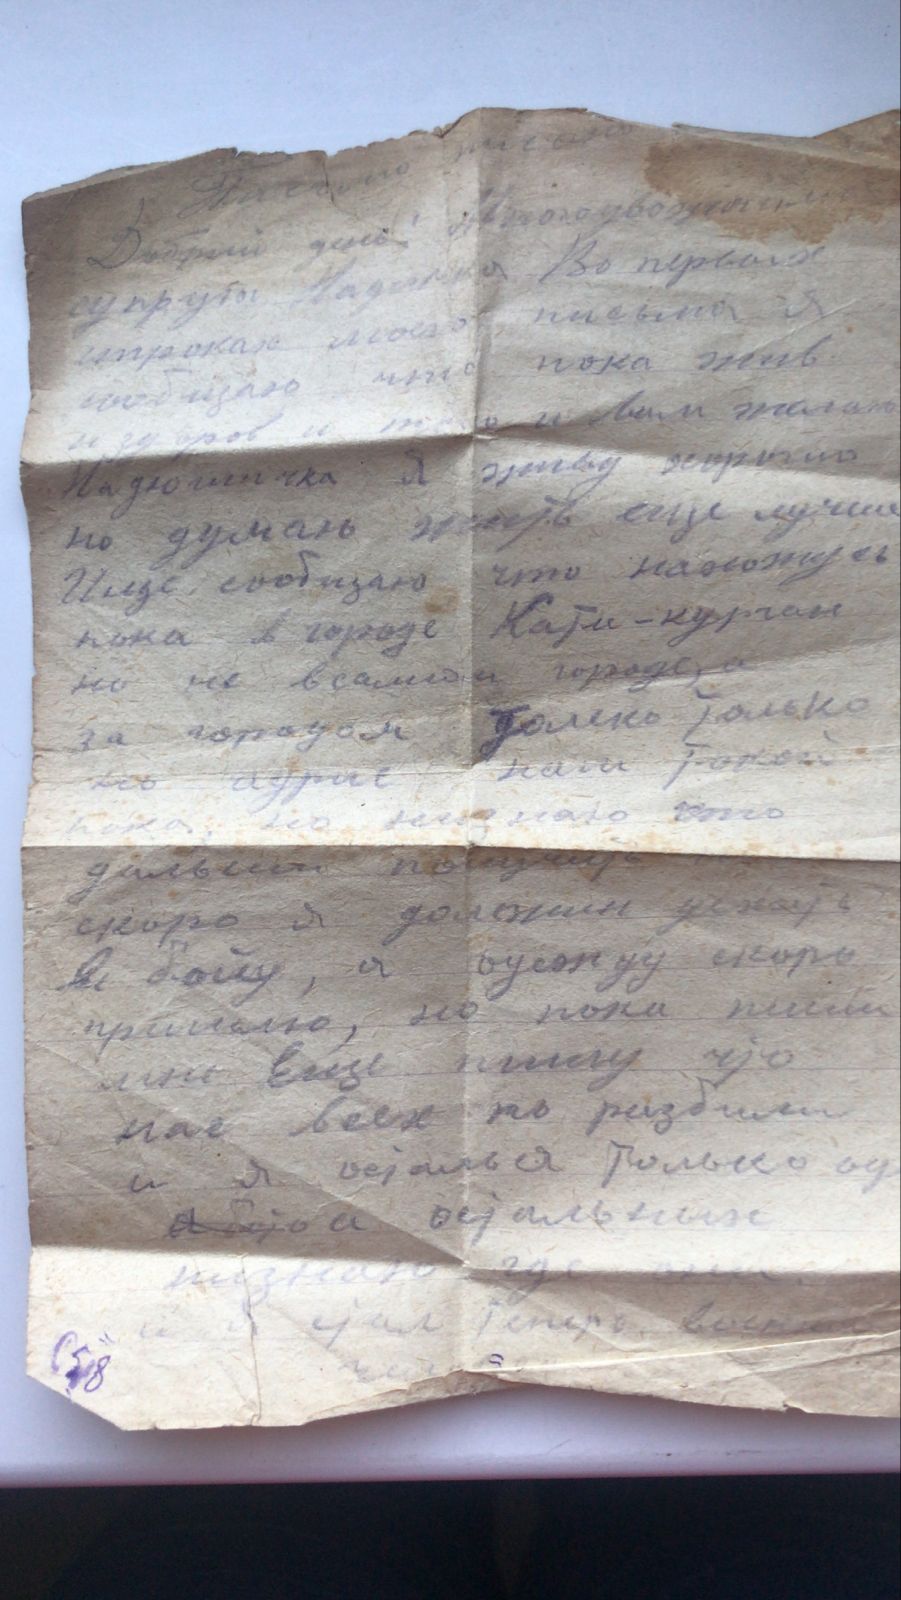 Письмо писано
Добрый день! Многоуважаимой
супруги Надюшка Во первых
строках моего письма я
сообщаю что пока жив
и здоров и того и вам желаю
Надюшичка я живу хорошо
но думаю жить еще лучше
Ище сообщаю что нахожусь
пока в городе Ката-курган
но не в самом городе, а
за городом далеко только
но адрис наш такой
пока, но низнаю что
дальши получить
скоро я должин уехать
к бойу, а оттуда скоро
пришлю, но пока пиши
мне Еще пишу что
нас всех то разбили
и я остался только од
а остальных
низнаю где они.
и я стал теперь
С5/18